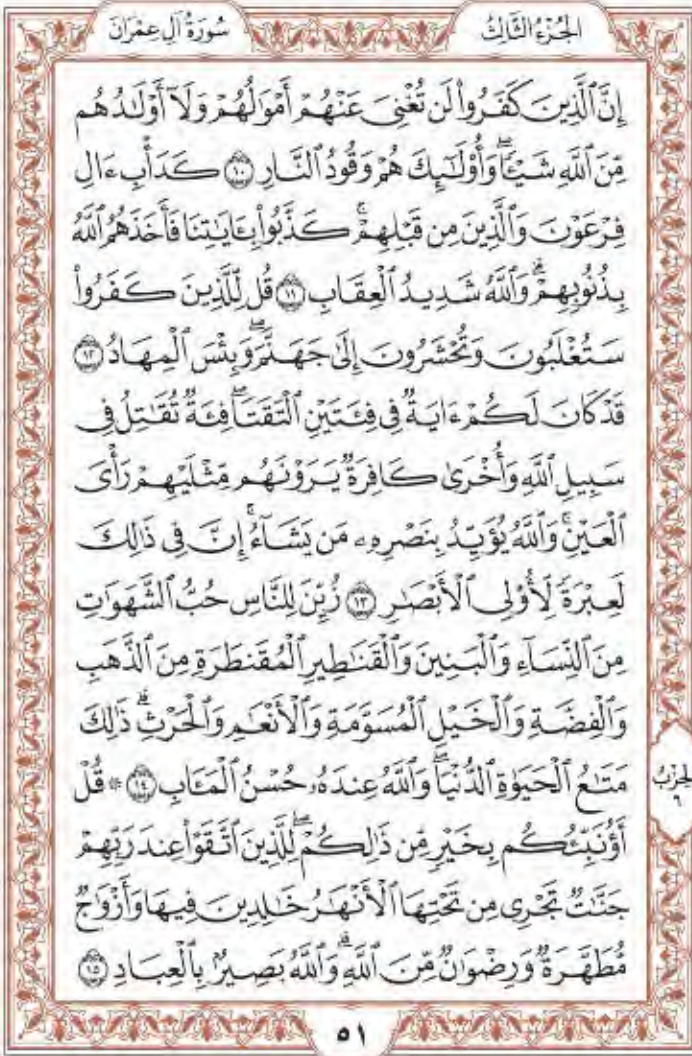 سُورَةُ آلِ عِمْرَانَ
الجُزْءُ الثَّالِثُ
إِنَّ ٱلَّذِينَ كَفَرُواْ لَن تُغْنِيَ عَنْهُمْ أَمْوَٰلُهُمْ وَلَآ أَوْلَٰدُهُم
مِّنَ ٱللَّهِ شَيْـًٔاۖ وَأُوْلَٰٓئِكَ هُمْ وَقُودُ ٱلنَّارِ ١٠ كَدَأْبِ ءَالِ
فِرْعَوْنَ وَٱلَّذِينَ مِن قَبْلِهِمْۚ كَذَّبُواْ بِـَٔايَٰتِنَا فَأَخَذَهُمُ ٱللَّهُ
بِذُنُوبِهِمْۗ وَٱللَّهُ شَدِيدُ ٱلْعِقَابِ ١١ قُل لِّلَّذِينَ كَفَرُواْ
سَتُغْلَبُونَ وَتُحْشَرُونَ إِلَىٰ جَهَنَّمَۖ وَبِئْسَ ٱلْمِهَادُ ١٢
قَدْ كَانَ لَكُمْ ءَايَةٌ فِي فِئَتَيْنِ ٱلْتَقَتَاۖ فِئَةٌ تُقَٰتِلُ فِي
سَبِيلِ ٱللَّهِ وَأُخْرَىٰ كَافِرَةٌ يَرَوْنَهُم مِّثْلَيْهِمْ رَأْيَ
ٱلْعَيْنِۚ وَٱللَّهُ يُؤَيِّدُ بِنَصْرِهِۦ مَن يَشَآءُۚ إِنَّ فِي ذَٰلِكَ
لَعِبْرَةً لِّأُوْلِي ٱلْأَبْصَٰرِ ١٣ زُيِّنَ لِلنَّاسِ حُبُّ ٱلشَّهَوَٰتِ
مِنَ ٱلنِّسَآءِ وَٱلْبَنِينَ وَٱلْقَنَٰطِيرِ ٱلْمُقَنطَرَةِ مِنَ ٱلذَّهَبِ
وَٱلْفِضَّةِ وَٱلْخَيْلِ ٱلْمُسَوَّمَةِ وَٱلْأَنْعَٰمِ وَٱلْحَرْثِۗ ذَٰلِكَ
مَتَٰعُ ٱلْحَيَوٰةِ ٱلدُّنْيَاۖ وَٱللَّهُ عِندَهُۥ حُسْنُ ٱلْمَـَٔابِ ١٤ ۞ قُلْ
أَؤُنَبِّئُكُم بِخَيْرٍ مِّن ذَٰلِكُمْۖ لِلَّذِينَ ٱتَّقَوْاْ عِندَ رَبِّهِمْ
جَنَّٰتٌ تَجْرِي مِن تَحْتِهَا ٱلْأَنْهَٰرُ خَٰلِدِينَ فِيهَا وَأَزْوَٰجٌ
مُّطَهَّرَةٌ وَرِضْوَٰنٌ مِّنَ ٱللَّهِۗ وَٱللَّهُ بَصِيرٌۢ بِٱلْعِبَادِ ١٥
الحِزْبُ
٦
٥١